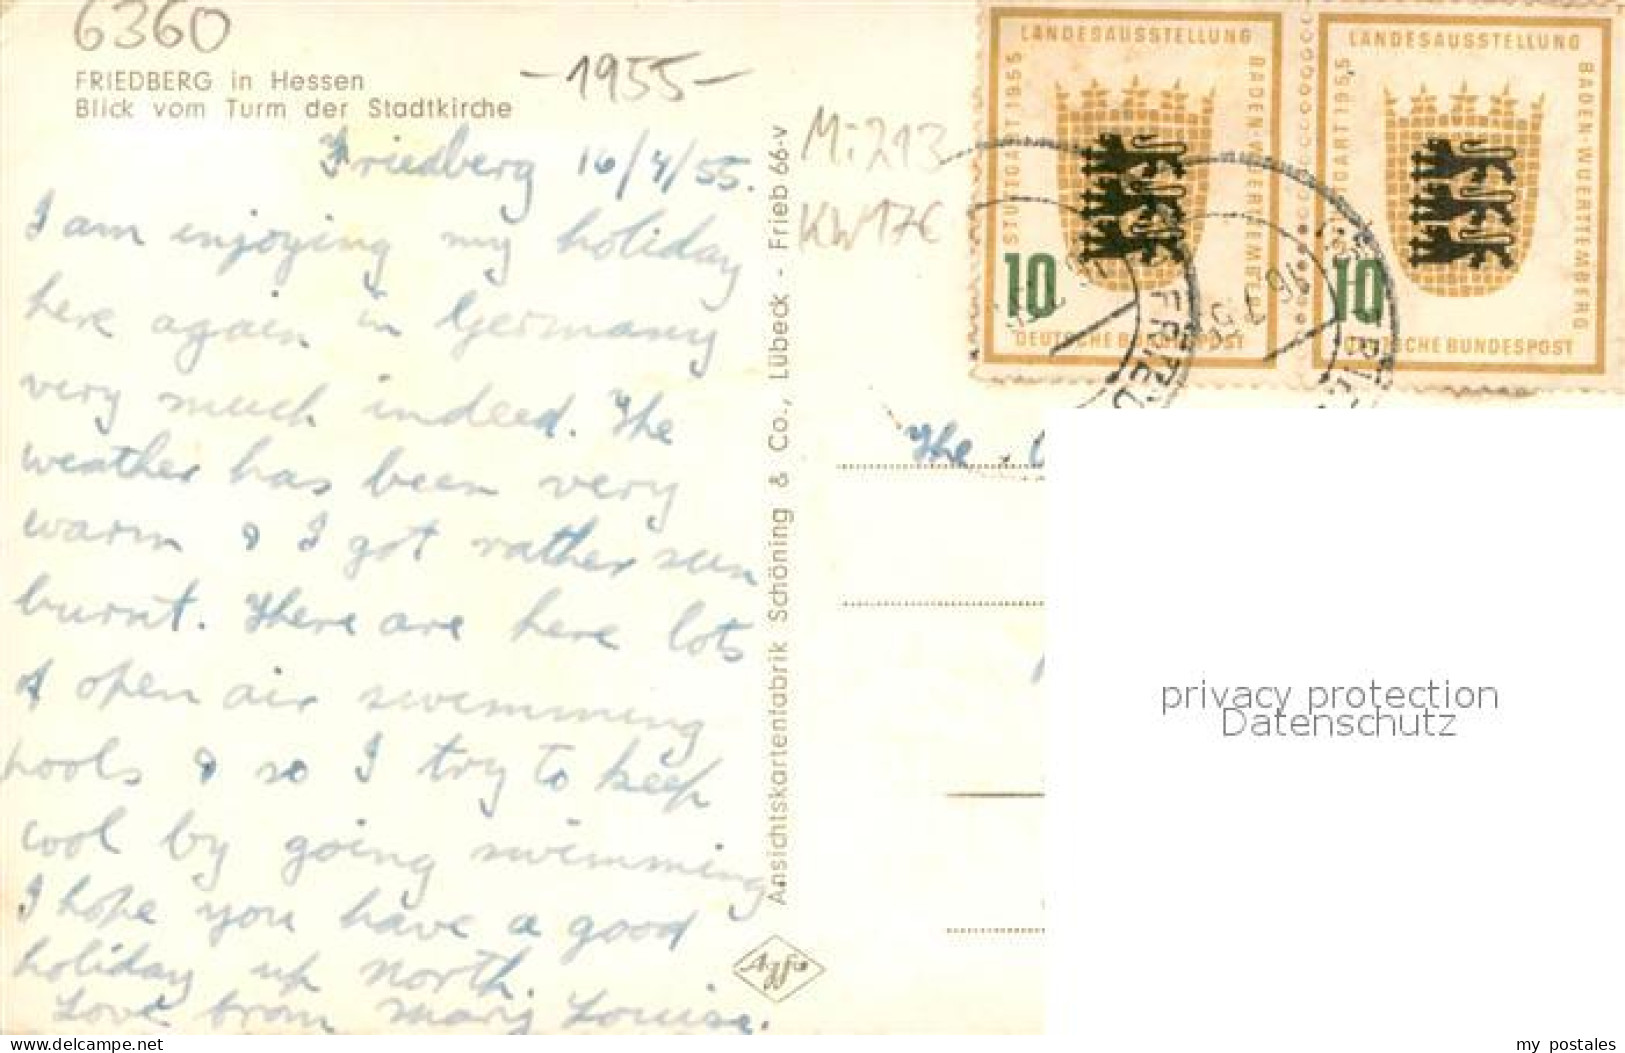 6360
FRIEDBERG in Hessen
Blick vom Turm der Stadtkirche
-1955-
Friedberg 16/7/55.
I am enjoying my holiday
here again in Germany
very much indeed. The
weather has been very
warm & I got rather sun
burnt. There are here lots
of open air swimming
pools & so I try to keep
cool by going swimming.
I hope you have a good
holiday up north.
Love from Mary Louise.
Ansichtskartenfabrik Schöning & Co., Lübeck - Frieb 66-v
Agfa
Mi 213
KW 17€
LANDESAUSSTELLUNG
BADEN-WUERTTEMBERG
STUTTGART 1955
10
DEUTSCHE BUNDESPOST
LANDESAUSSTELLUNG
BADEN-WUERTTEMBERG
STUTTGART 1955
10
DEUTSCHE BUNDESPOST
16 7 55
The
privacy protection
Datenschutz
delcampe.net
my_postales